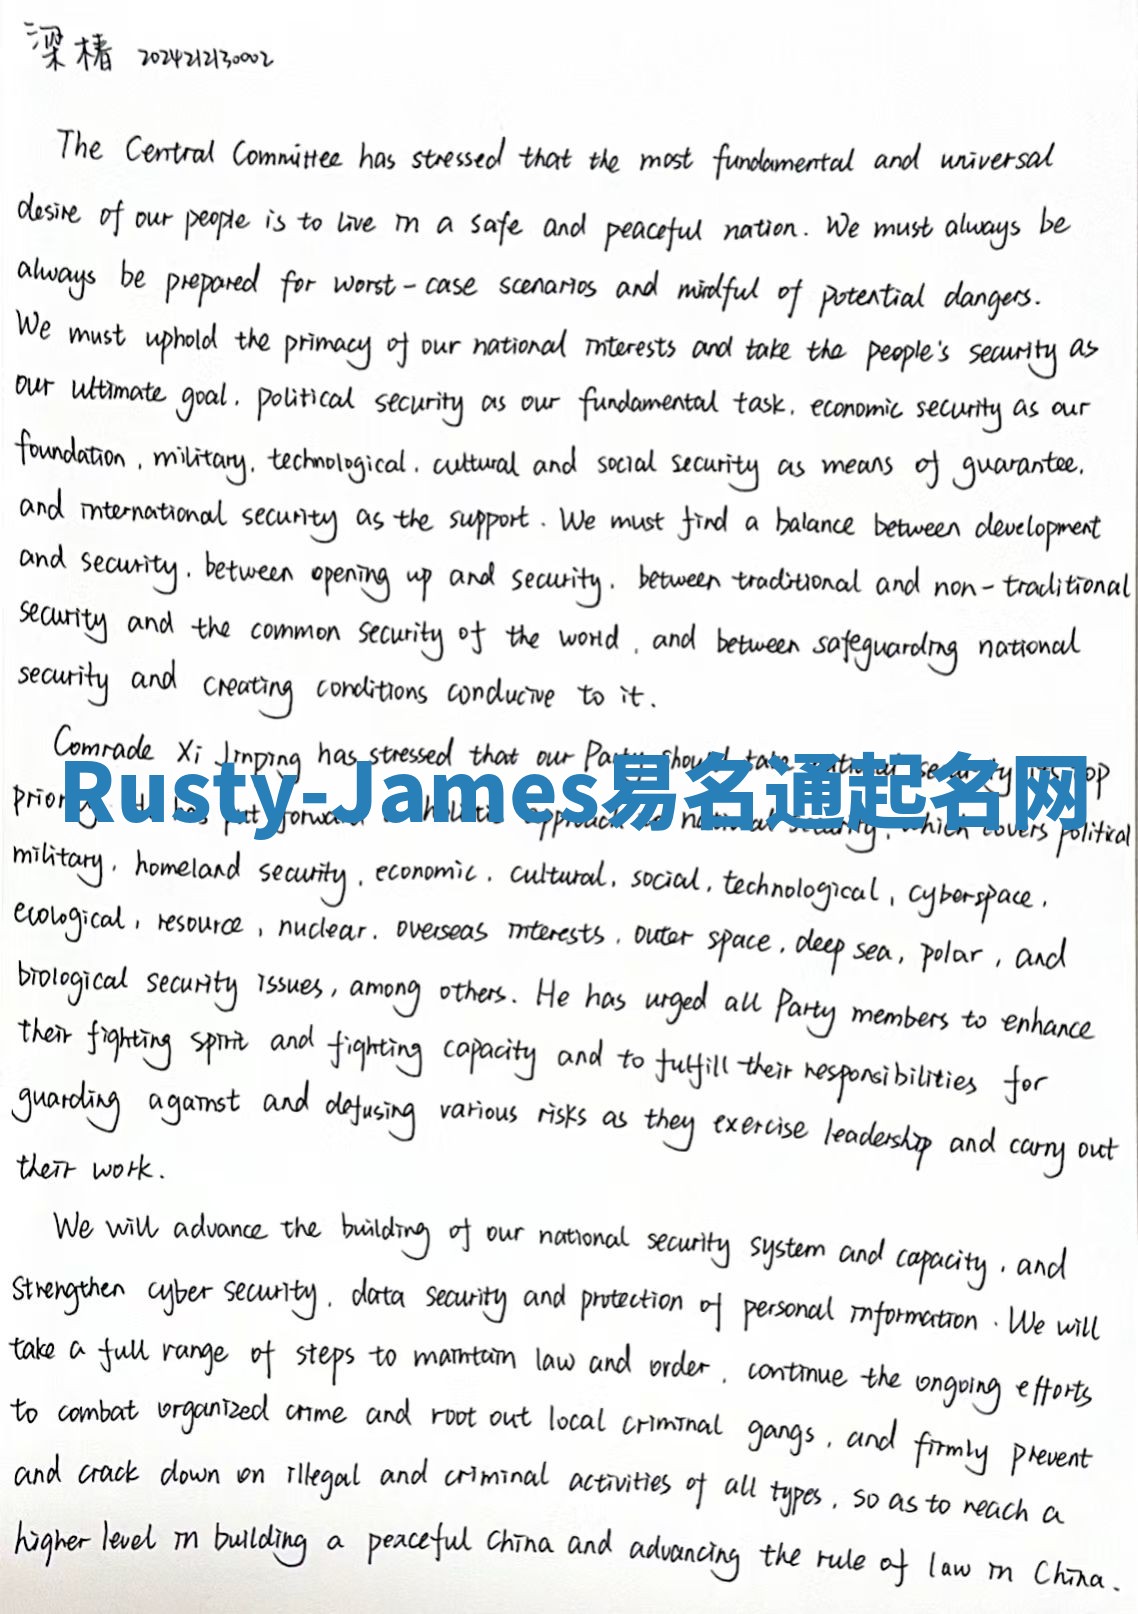 梁椿 2024212130002
The Central Committee has stressed that the most fundamental and universal
desire of our people is to live in a safe and peaceful nation. We must always be
always be prepared for worst-case scenarios and mindful of potential dangers.
We must uphold the primacy of our national interests and take the people's security as
our ultimate goal, political security as our fundamental task, economic security as our
foundation, military, technological, cultural and social security as means of guarantee,
and international security as the support. We must find a balance between development
and security, between opening up and security, between traditional and non-traditional
security and the common security of the world, and between safeguarding national
security and creating conditions conducive to it.
Comrade Xi Jinping has stressed that our Party should take national security as top
Rusty-James易名通起名网
put forward holistic approach national security, which covers political
military, homeland security, economic, cultural, social, technological, cyberspace,
ecological, resource, nuclear, overseas interests, outer space, deep sea, polar, and
biological security issues, among others. He has urged all Party members to enhance
their fighting spirit and fighting capacity and to fulfill their responsibilities for
guarding against and defusing various risks as they exercise leadership and carry out
their work.
We will advance the building of our national security system and capacity, and
strengthen cyber security, data security and protection of personal information. We will
take a full range of steps to maintain law and order, continue the ongoing efforts
to combat organized crime and root out local criminal gangs, and firmly prevent
and crack down on illegal and criminal activities of all types, so as to reach a
higher level in building a peaceful China and advancing the rule of law in China.